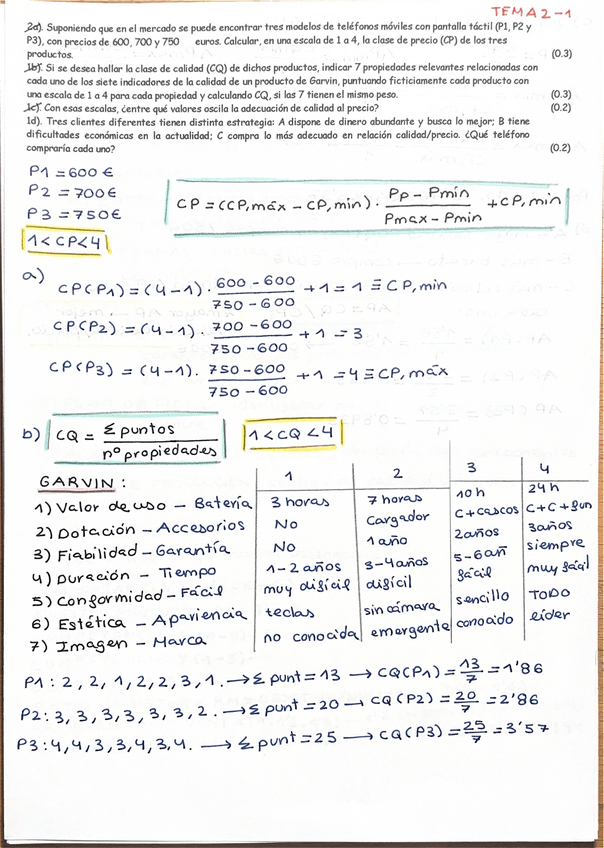 TEMA 2-1
2a). Suponiendo que en el mercado se puede encontrar tres modelos de teléfonos móviles con pantalla táctil (P1, P2 y
P3), con precios de 600, 700 y 750 euros. Calcular, en una escala de 1 a 4, la clase de precio (CP) de los tres
productos. (0.3)
1b). Si se desea hallar la clase de calidad (CQ) de dichos productos, indicar 7 propiedades relevantes relacionadas con
cada uno de los siete indicadores de la calidad de un producto de Garvin, puntuando ficticiamente cada producto con
una escala de 1 a 4 para cada propiedad y calculando CQ, si las 7 tienen el mismo peso. (0.3)
1c). Con esas escalas, ¿entre qué valores oscila la adecuación de calidad al precio? (0.2)
1d). Tres clientes diferentes tienen distinta estrategia: A dispone de dinero abundante y busca lo mejor; B tiene
dificultades económicas en la actualidad; C compra lo más adecuado en relación calidad/precio. ¿Qué teléfono
compraría cada uno? (0.2)
P1 = 600 €
P2 = 700€
P3 = 750€
CP = (CP,máx - CP,min) · (Pp - Pmín / Pmax - Pmin) + CP,min
1 < CP < 4
a)
CP(P1) = (4-1) · (600 - 600 / 750 - 600) + 1 = 1 ≡ CP,min
CP(P2) = (4-1) · (700 - 600 / 750 - 600) + 1 = 3
CP(P3) = (4-1) · (750 - 600 / 750 - 600) + 1 = 4 ≡ CP,máx
b) CQ = Σ puntos / nº propiedades 1 < CQ < 4
GARVIN: 1 2 3 4
1) Valor de uso - Batería 3 horas 7 horas 10 h 24 h
2) Dotación - Accesorios No Cargador C+cascos C+C+fun
3) Fiabilidad - Garantía No 1 año 2años 3años
4) Duración - Tiempo 1-2 años 3-4años 5-6añ siempre
5) Conformidad - Fácil muy difícil difícil fácil muy fácil
6) Estética - Apariencia teclas sin cámara sencillo TODO
7) Imagen - Marca no conocida emergente conocido líder
P1: 2, 2, 1, 2, 2, 3, 1. → Σ punt = 13 → CQ(P1) = 13/7 = 1'86
P2: 3, 3, 3, 3, 3, 3, 2. → Σ punt = 20 → CQ(P2) = 20/7 = 2'86
P3: 4, 4, 3, 3, 4, 3, 4. → Σ punt = 25 → CQ(P3) = 25/7 = 3'57